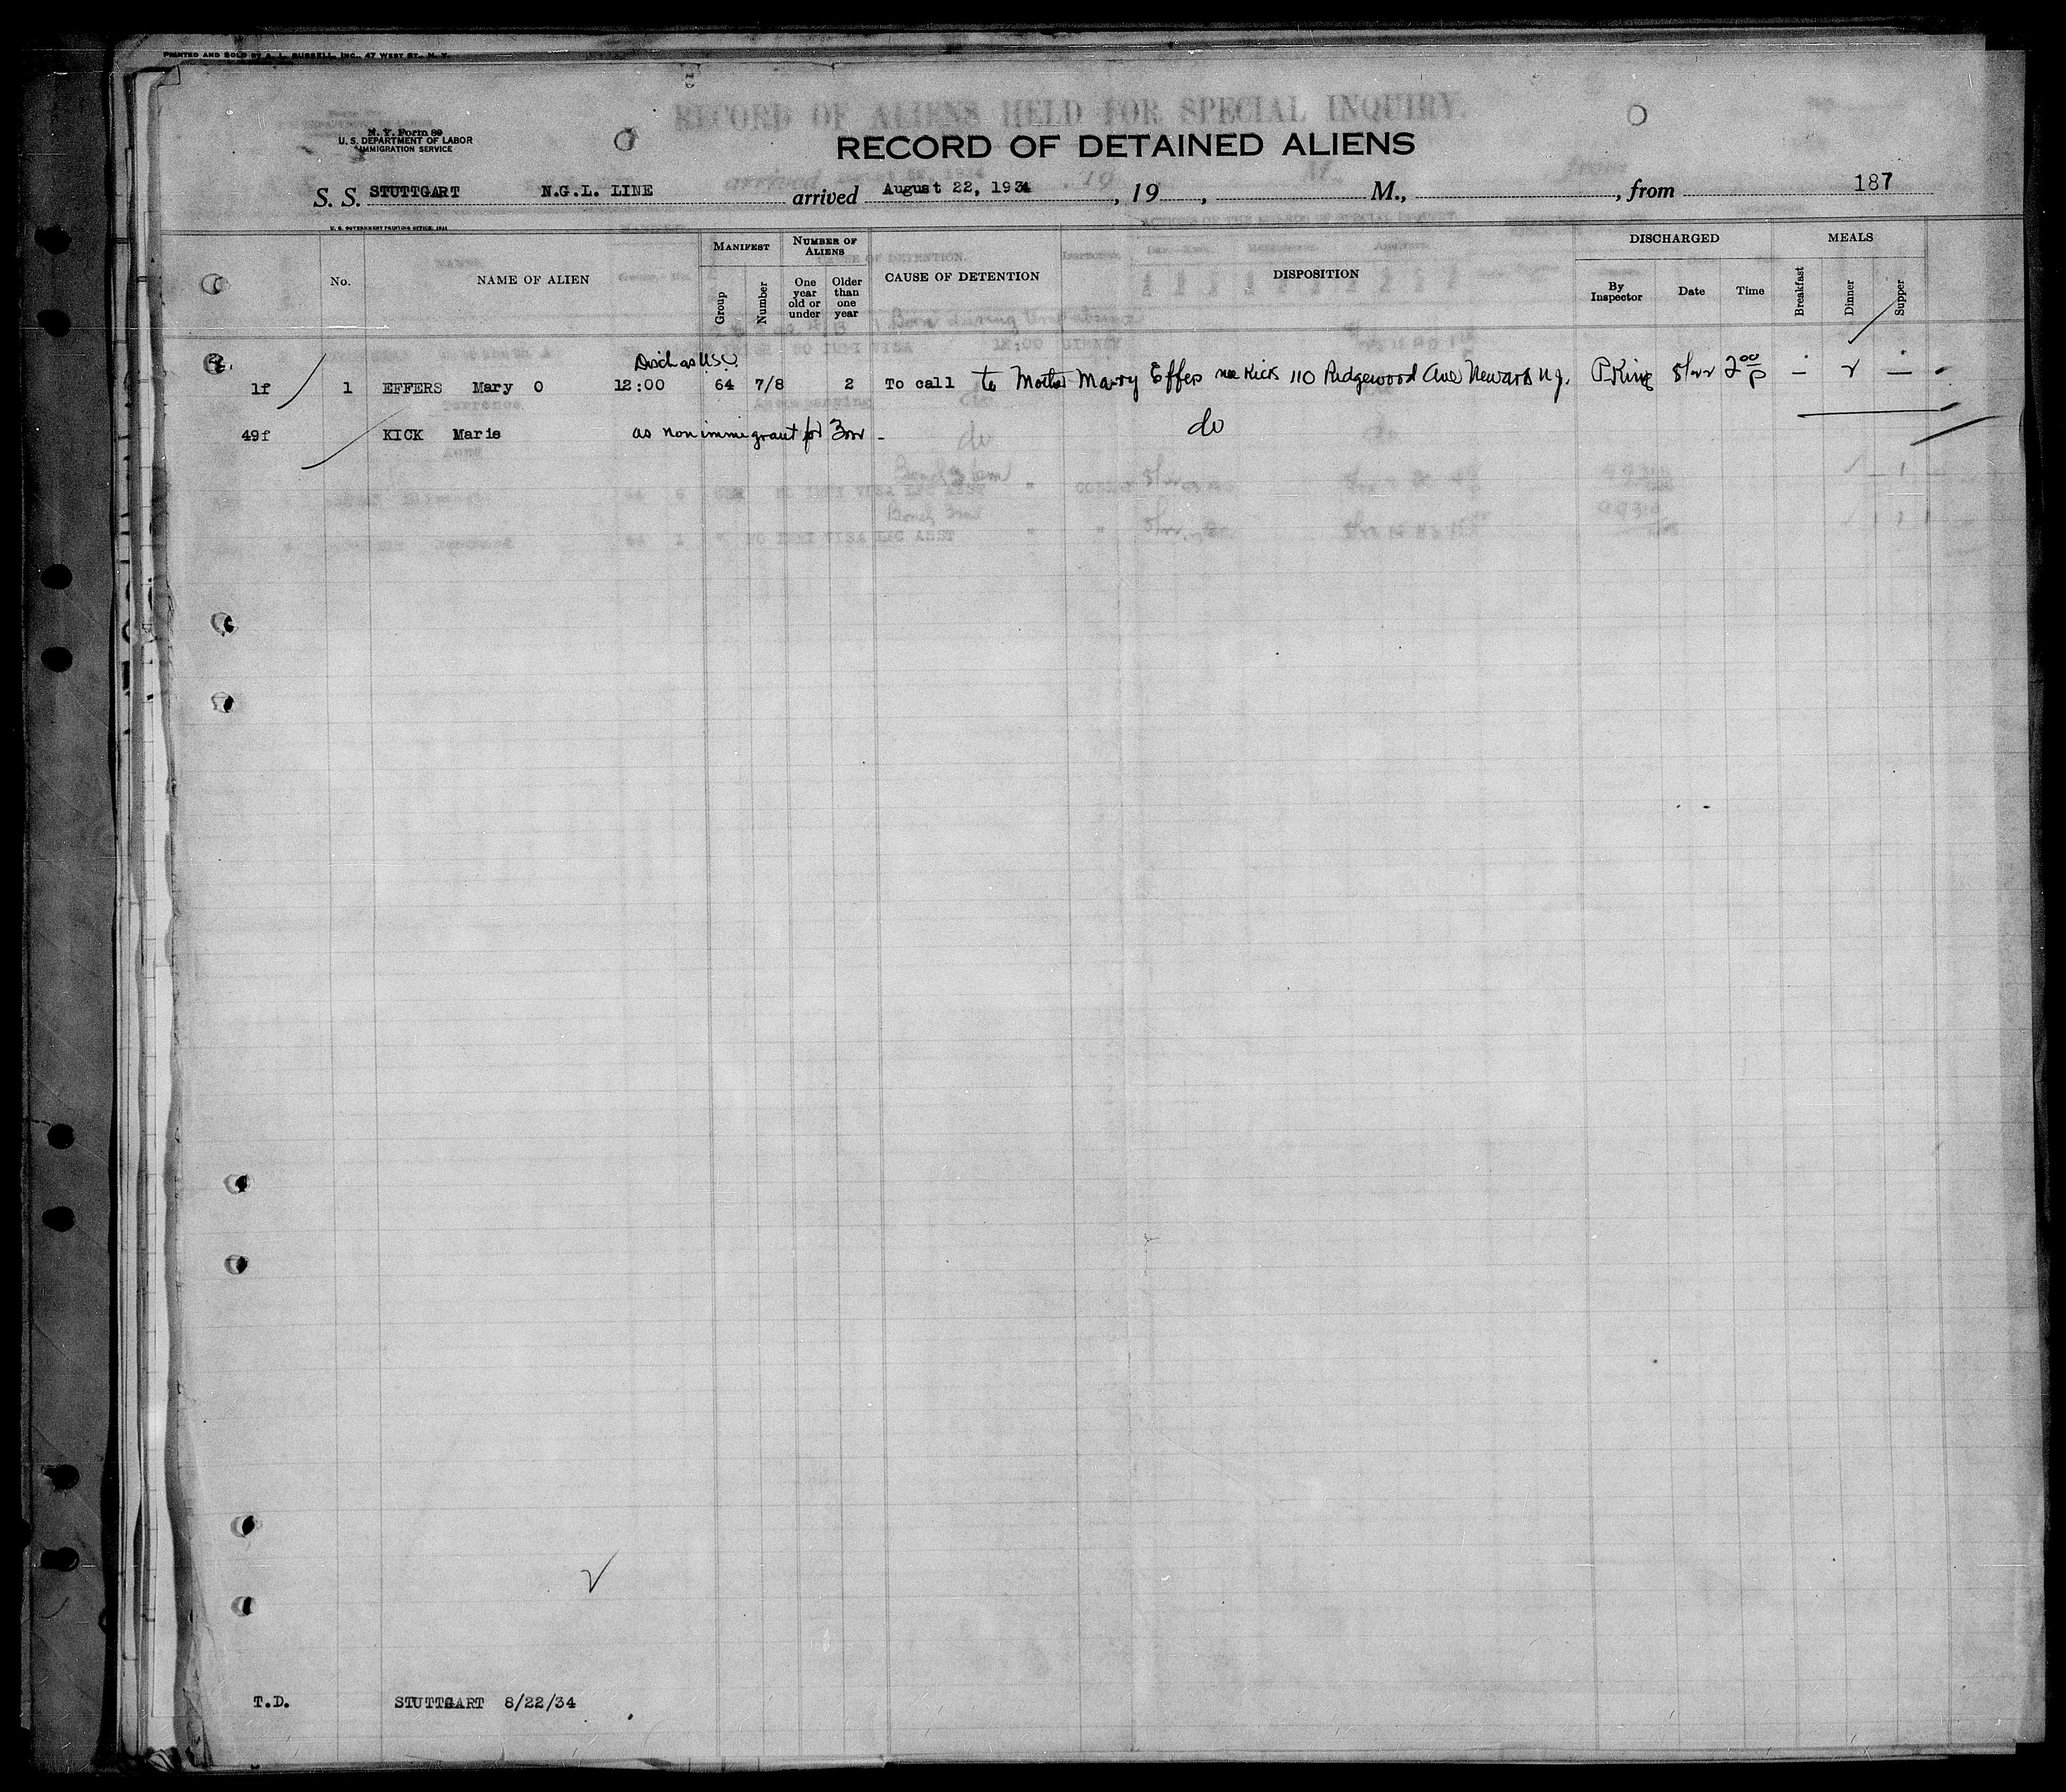 PRINTED AND SOLD BY A. L. RUSSELL, INC., 47 WEST ST., N. Y.
RECORD OF ALIENS HELD FOR SPECIAL INQUIRY.
N. Y. Form 89
U. S. DEPARTMENT OF LABOR
IMMIGRATION SERVICE
RECORD OF DETAINED ALIENS
S. S. STUTTGART N.G.L. LINE arrived August 22, 1934, 19 , M., , from 187
U. S. GOVERNMENT PRINTING OFFICE: 1931
No. NAME OF ALIEN MANIFEST Group Number NUMBER OF ALIENS One year old or under Older than one year CAUSE OF DETENTION DISPOSITION DISCHARGED By Inspector Date Time MEALS Breakfast Dinner Supper
Disch as USC.
1f 1 EFFERS Mary O 12:00 64 7/8 2 To call to Mother Mary Effers nee Kick 110 Ridgewood Ave Newark N.J. P King 8/22 2 00 P – 2 –
49f KICK Marie as non immigrant for 3m - do
T.D. STUTTGART 8/22/34